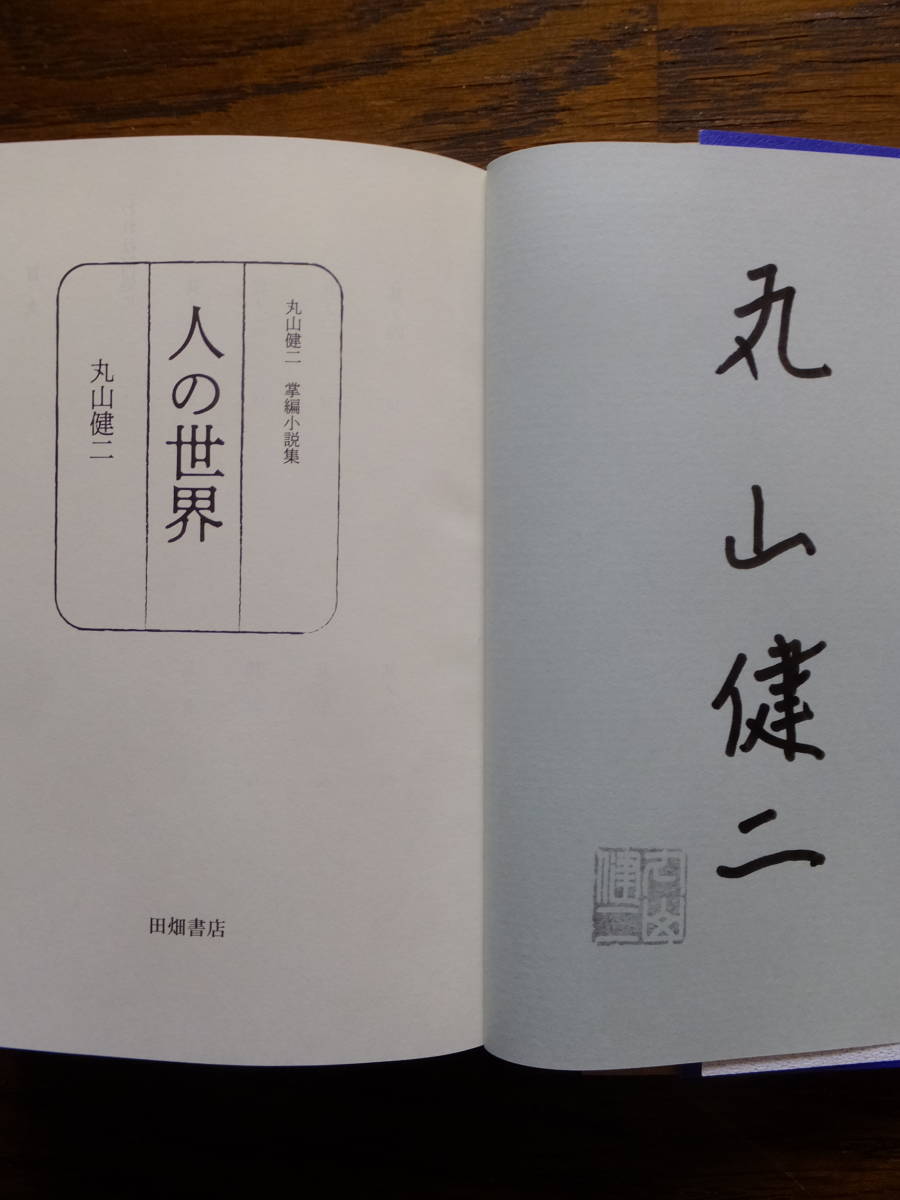 丸山健二
丸山健二
丸山健二 掌編小説集
人の世界
丸山健二
田畑書店